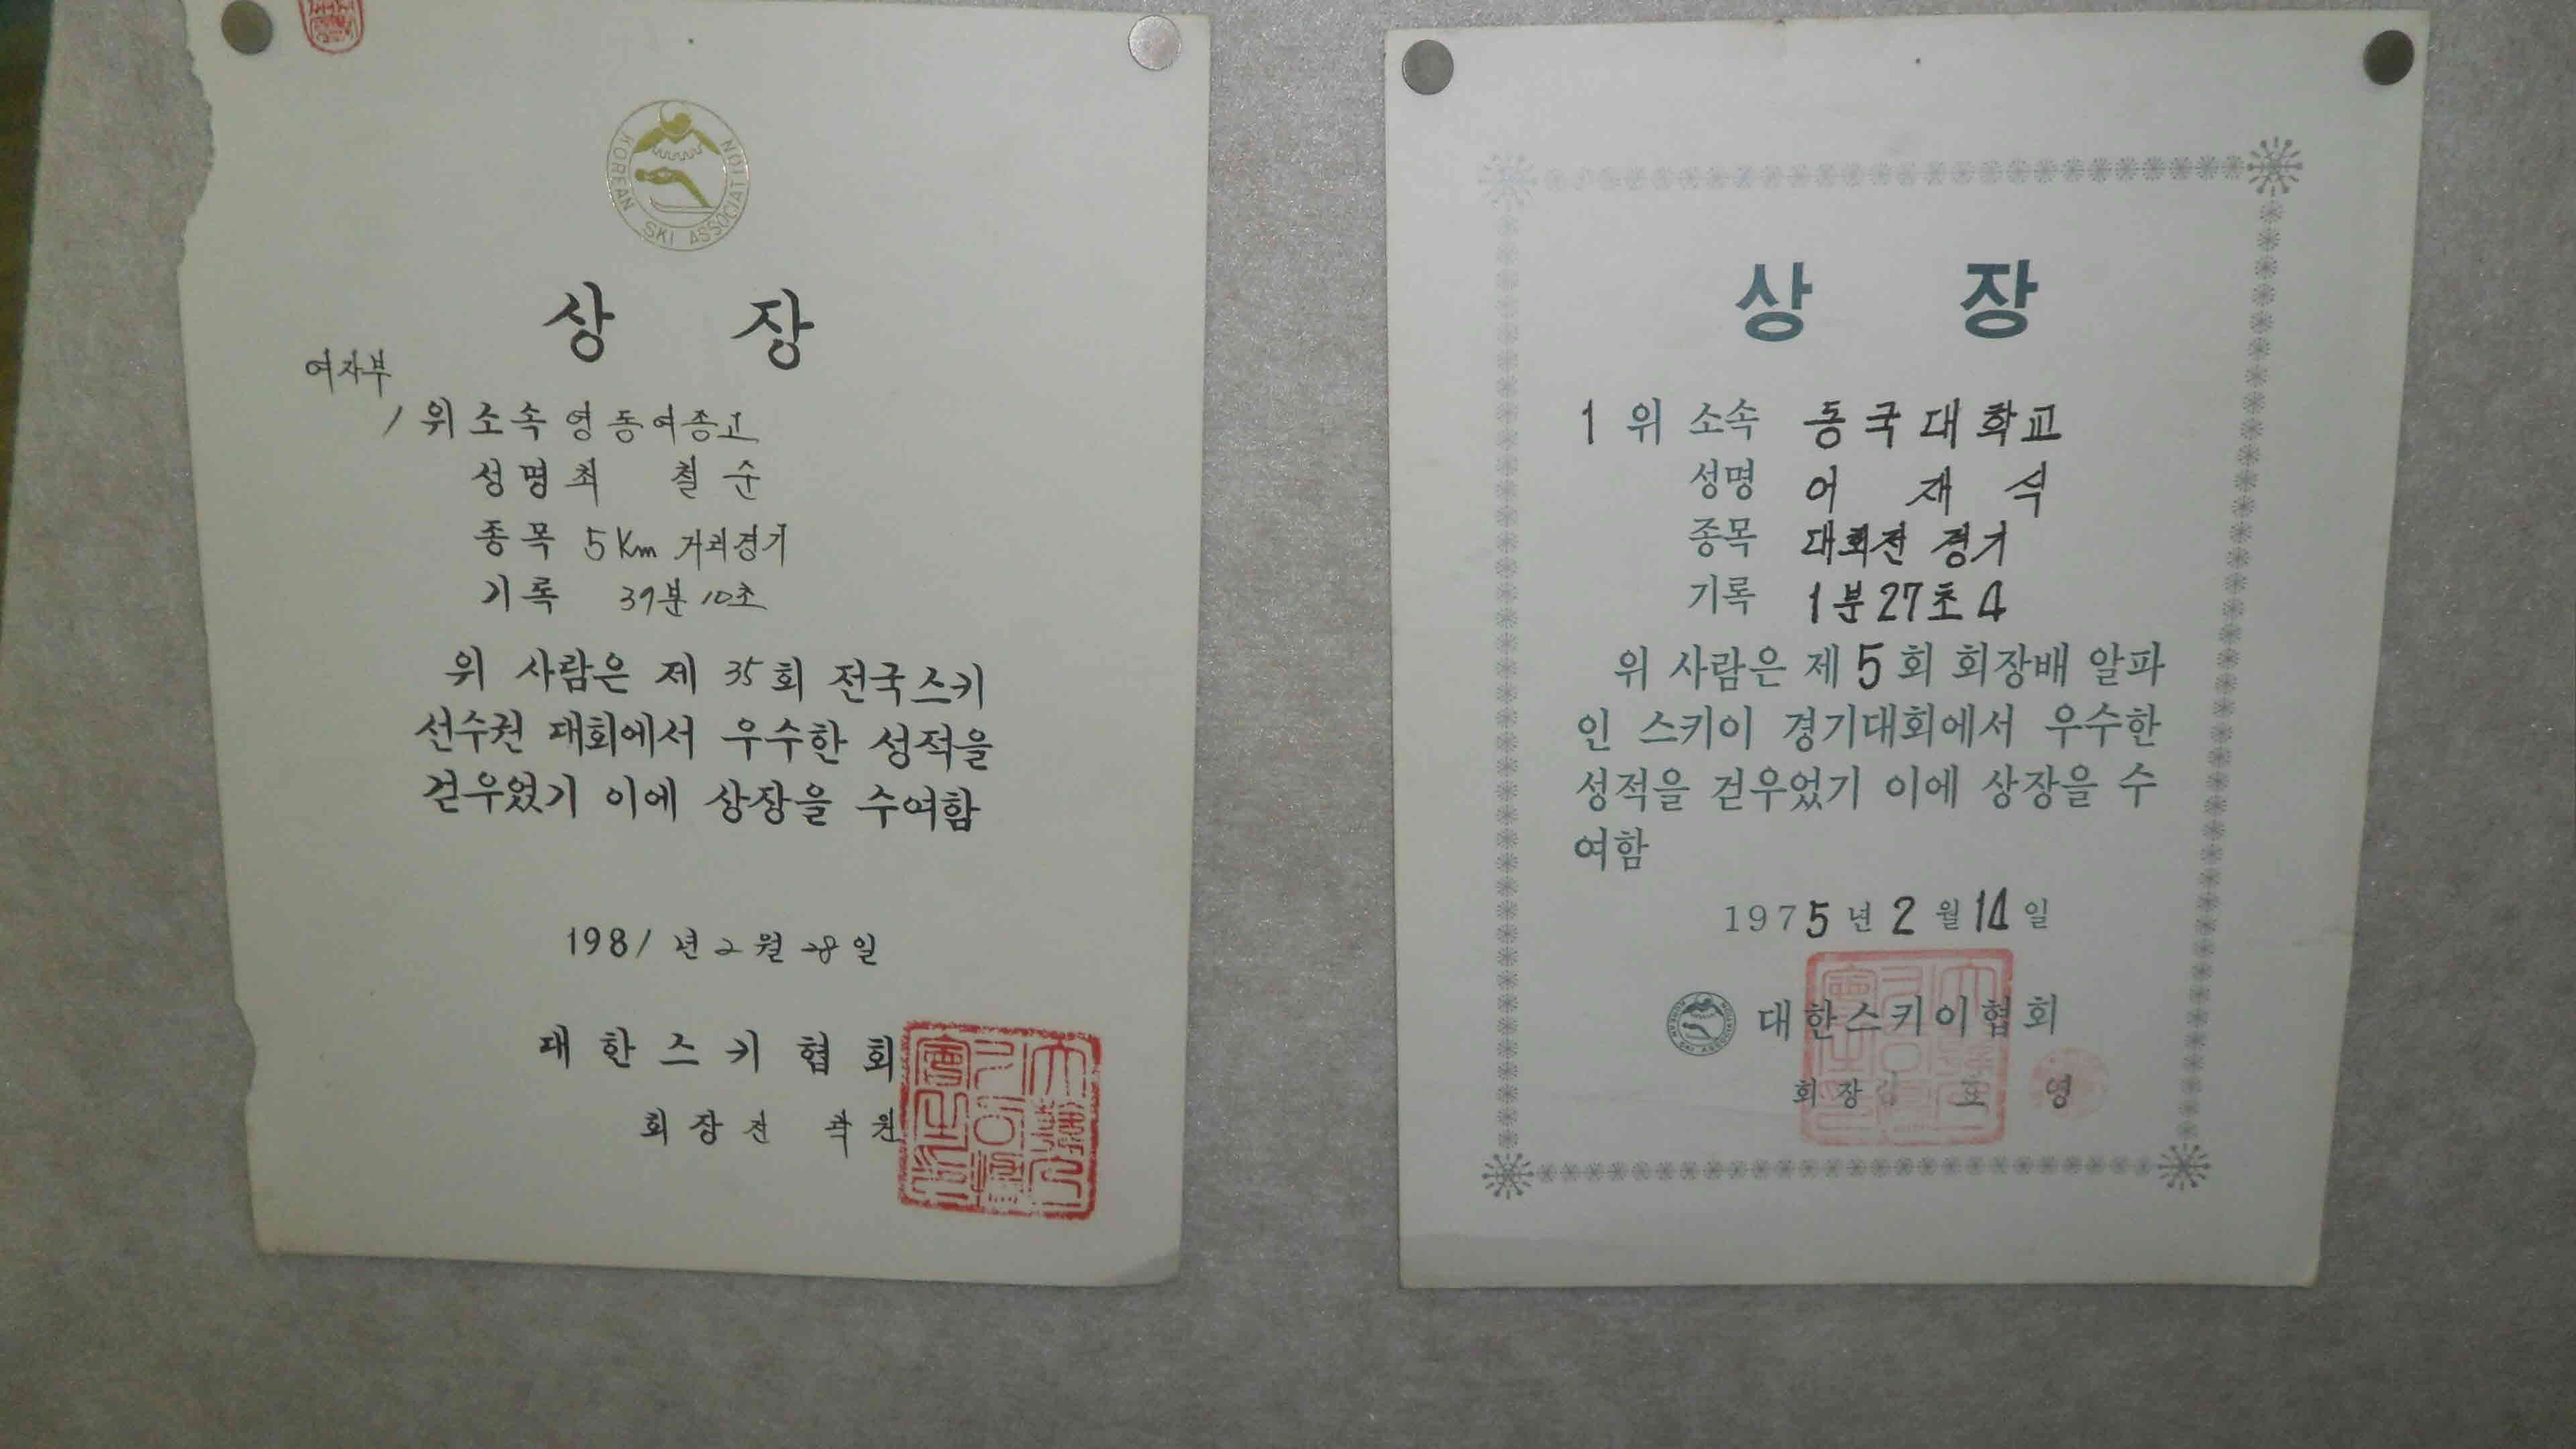 KOREAN SKI ASSOCIATION
상 장
여자부
1위 소속 영동여종고
성명 최 철 순
종목 5Km 거리경기
기록 39분 10초
위 사람은 제 35회 전국스키
선수권 대회에서 우수한 성적을
걷우었기 이에 상장을 수여함
1981년 2월 28일
대한스키협회
회장 전
상 장
1위 소속 동국대학교
성명 어 재 식
종목 대회전 경기
기록 1분27초4
위 사람은 제5회 회장배 알파
인 스키이 경기대회에서 우수한
성적을 걷우었기 이에 상장을 수
여함
1975년 2월 14일
대한스키이협회
회장 호 영